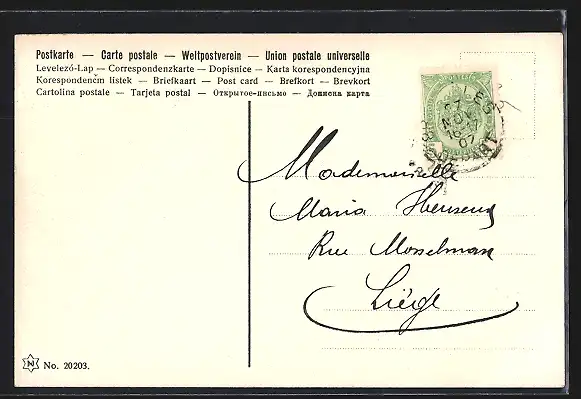 Postkarte — Carte postale — Weltpostverein — Union postale universelle
Levelező-Lap — Correspondenzkarte — Dopisnice — Karta korespondencyjna
Korespondenčni listek — Briefkaart — Post card — Brefkort — Brevkort
Cartolina postale — Tarjeta postal — Открытое-письмо — Дописна карта
27
NOV
18
07
DEPART
Mademoiselle
Maria
Rue Mosselman
Liége
N
No. 20203.